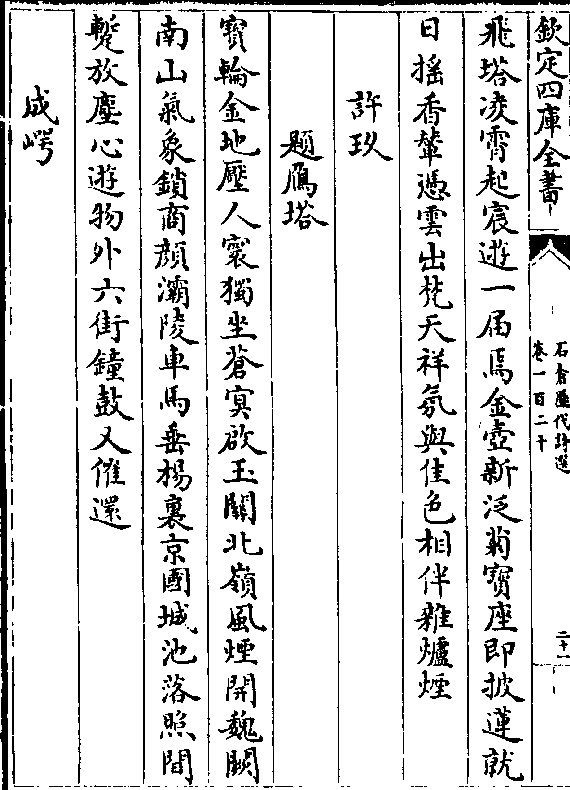 欽定四庫全書
石倉歷代詩選
卷一百二十
二十一
飛塔凌霄起宸遊一屆焉金壺新泛菊寶座即披蓮就
日揺香輦憑雲出梵天祥氛與佳色相伴雜爐煙
許玫
題鴈塔
寳輪金地壓人寰獨坐蒼冥啟玉關北嶺風煙開魏闕
南山氣象鎖商顔灞陵車馬垂楊裏京國城池落照間
蹔放塵心遊物外六街鐘鼓又催還
成崿